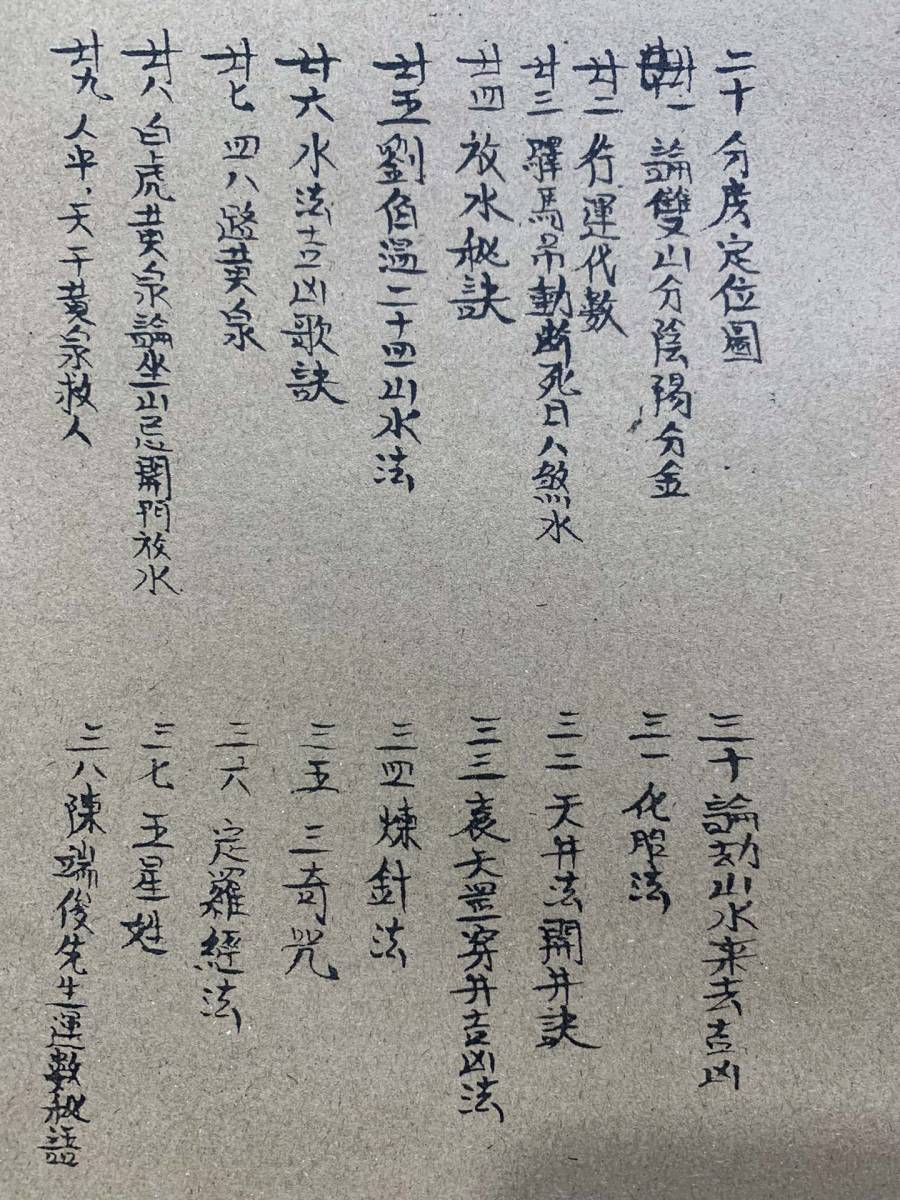 二十 分度定位圖
廿一 論雙山分陰陽分金
廿二 行運代數
廿三 驛馬吊動斷死日人煞水
廿四 放水秘訣
廿五 劉伯溫二十四山水法
廿六 水法吉凶歌訣
廿七 四八殺黃泉
廿八 白虎黃泉論坐山忌開門放水
廿九 人半、天干黃泉救人
三十 論劫山水来去吉凶
三一 化胎法
三二 天井法開井訣
三三 袁天罡穿井吉凶法
三四 煉針法
三五 三奇咒
三六 定羅經法
三七 五星姓
三八 陳端俊先生運數秘話